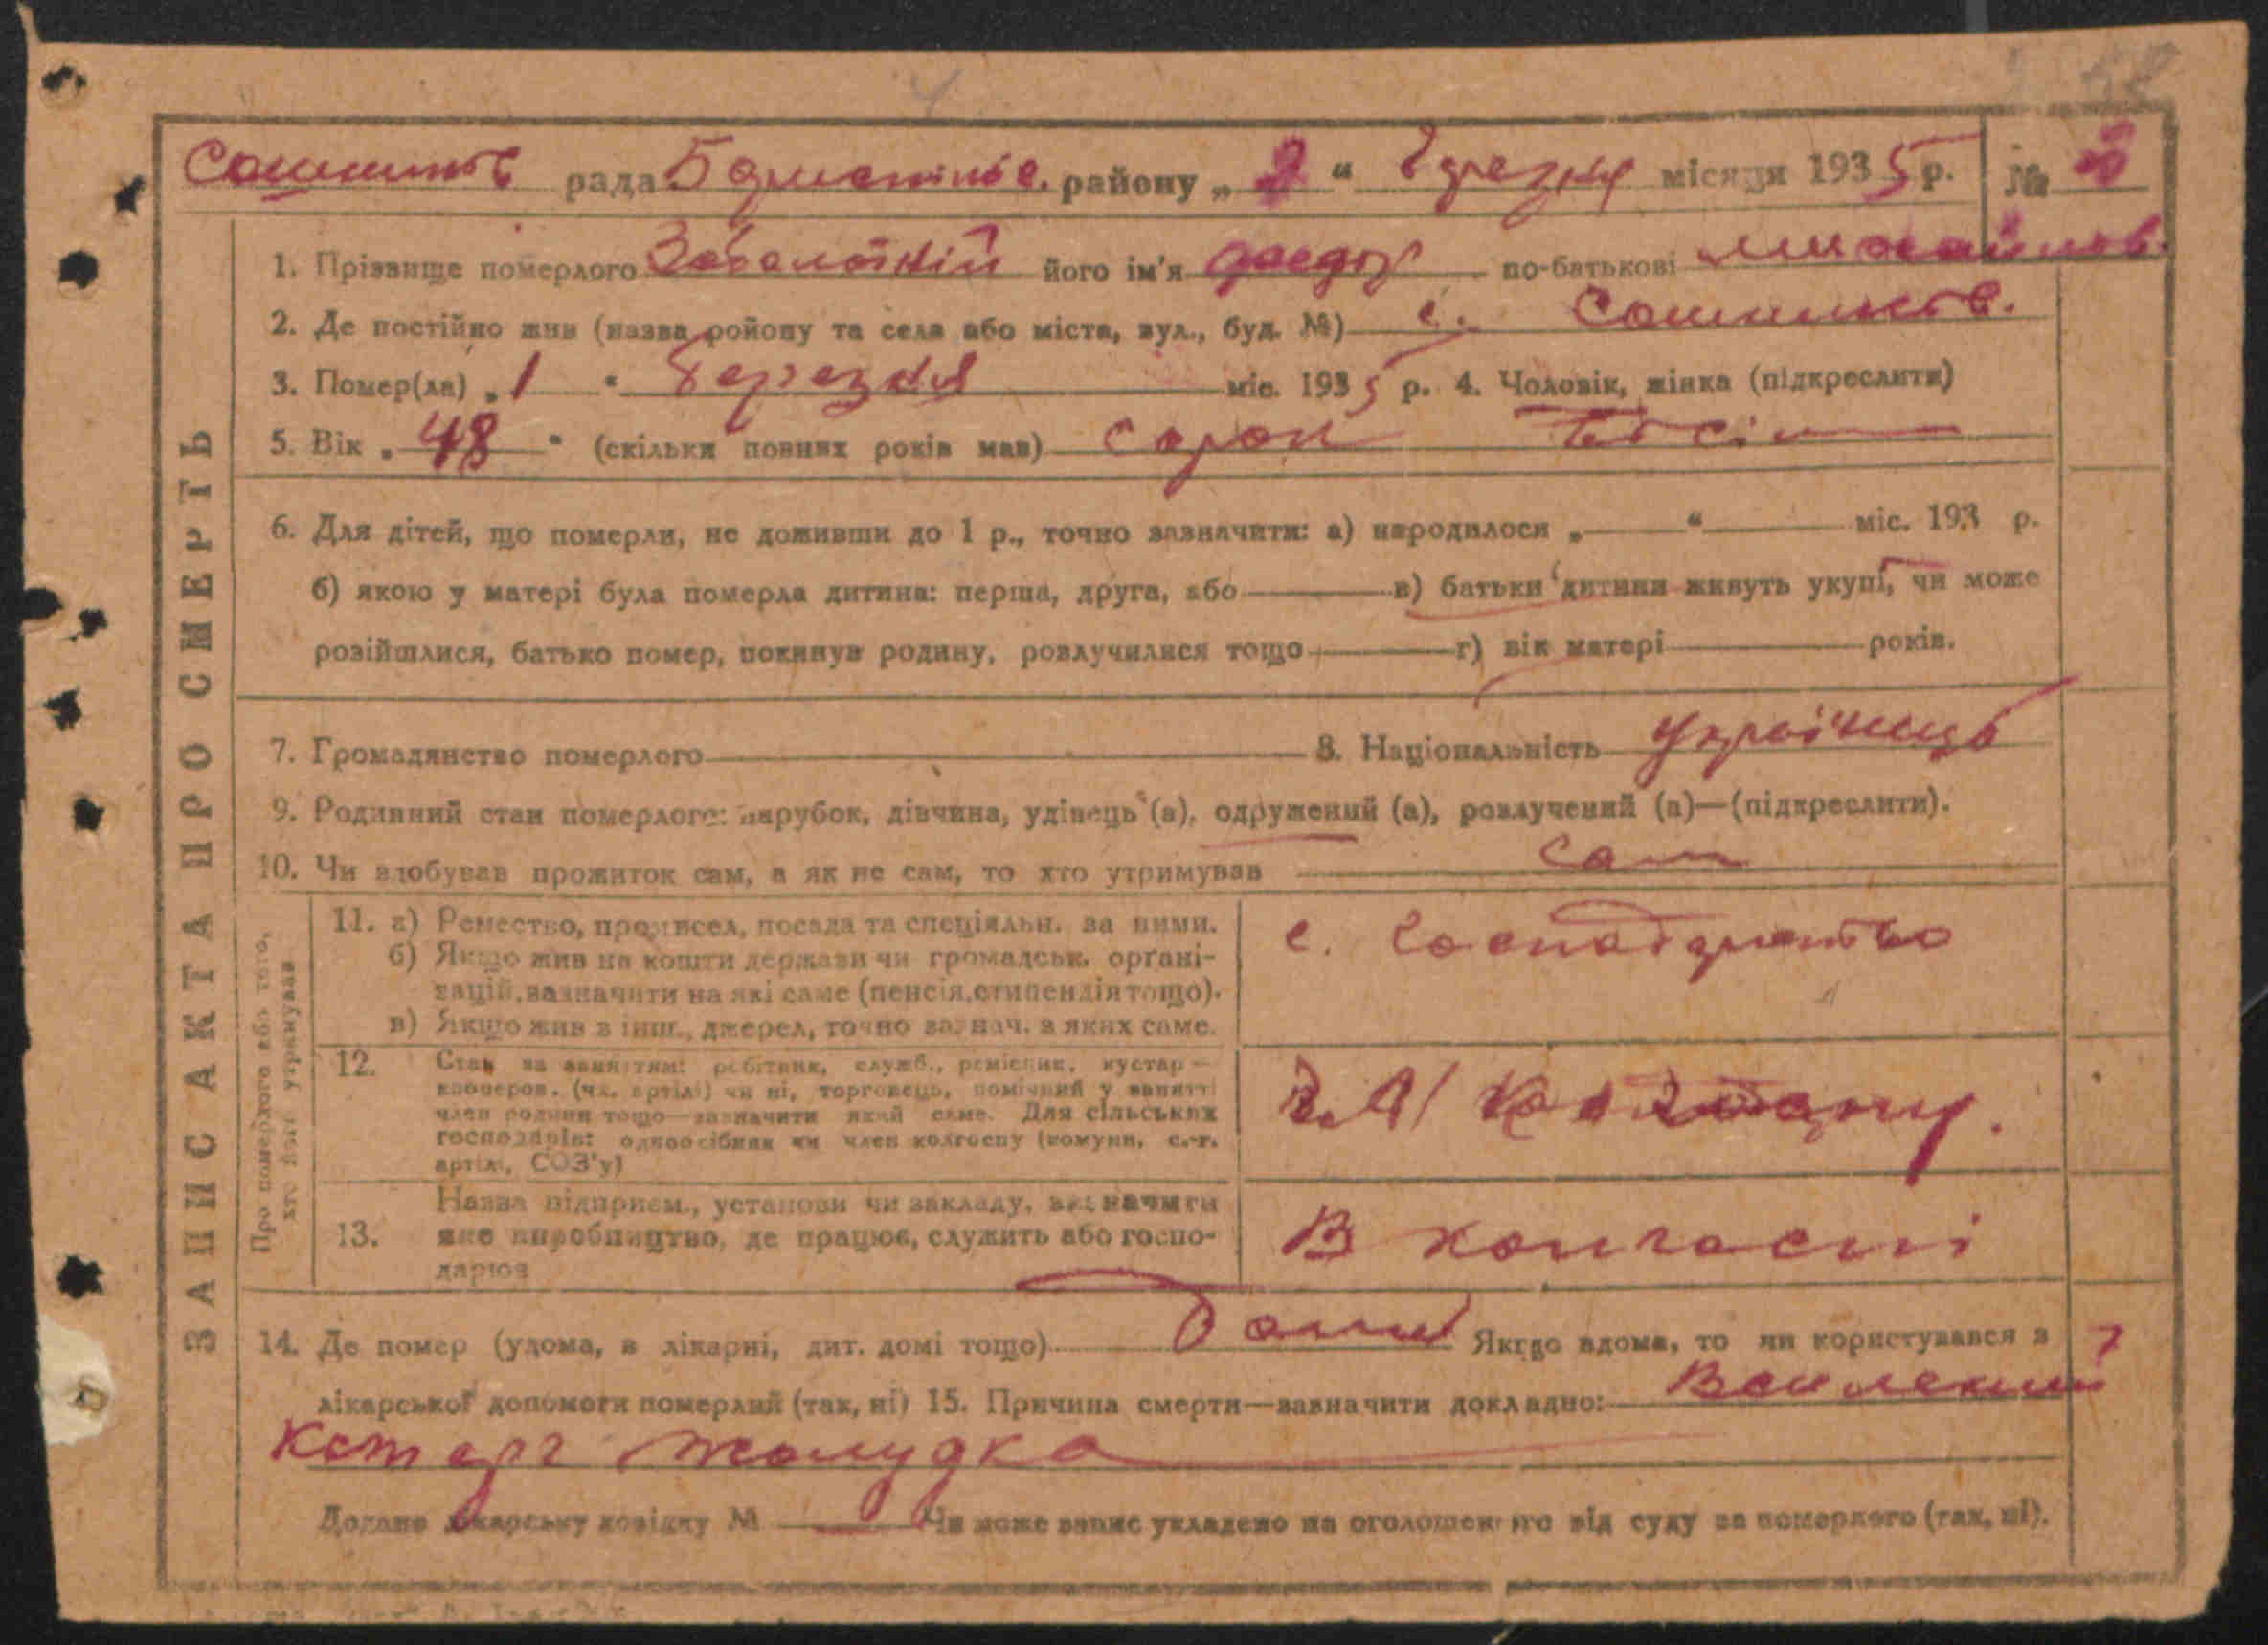 Сошників рада Бориспільс. району „2“ березня місяця 1935 р. №
1. Прізвище померлого Заболотній його ім'я Федор по-батькові Михайлов.
2. Де постійно жив (назва ройону та села або міста, вул., буд. №) с. Сошників.
3. Помер(ла) „1“ березня міс. 1935 р. 4. Чоловік, жінка (підкреслити)
5. Вік „48“ (скільки повних років мав) сорок вісім
6. Для дітей, що померли, не доживши до 1 р., точно зазначити: а) народилося „ “ міс. 193 р.
б) якою у матері була померла дитина: перша, друга, або в) батьки дитини живуть укупі, чи може
розійшлися, батько помер, покинув родину, розлучилися тощо г) вік матері років.
7. Громадянство померлого 8. Національність українець
9. Родинний стан померлого: парубок, дівчина, удівець (а), одружений (а), розлучений (а)—(підкреслити).
10. Чи здобував прожиток сам, а як не сам, то хто утримував сам
ЗАПИС АКТА ПРО СМЕРТЬ
Про померлого або того,
хто його утримував
11. а) Ремество, промисел, посада та спеціяльн. за ними.
б) Якщо жив на кошти держави чи громадськ. органі-
зацій, зазначити на які саме (пенсія, стипендія тощо).
в) Якщо жив з інш., джерел, точно зазнач. з яких саме.
с. господарство
12. Стан за заняттям: робітник, служб., ремісник, кустар—
кооперов. (чл. артілі) чи ні, торговець, помічний у занятті
член родини тощо—зазначити який саме. Для сільських
господарів: одноосібник чи член колгоспу (комуни, с.-г.
артілі, СОЗ'у)
13. Назва підприєм., установи чи закладу, зазначити
яке виробництво, де працює, служить або госпо-
дарює
В колгоспі
14. Де помер (удома, в лікарні, дит. домі тощо) дома Якщо вдома, то чи користувався з
лікарської допомоги померлий (так, ні) 15. Причина смерти—зазначити докладно:
желудка
Додано лікарську довідку № Чи може запис укладено на оголошення від суду за померлого (так, ні).